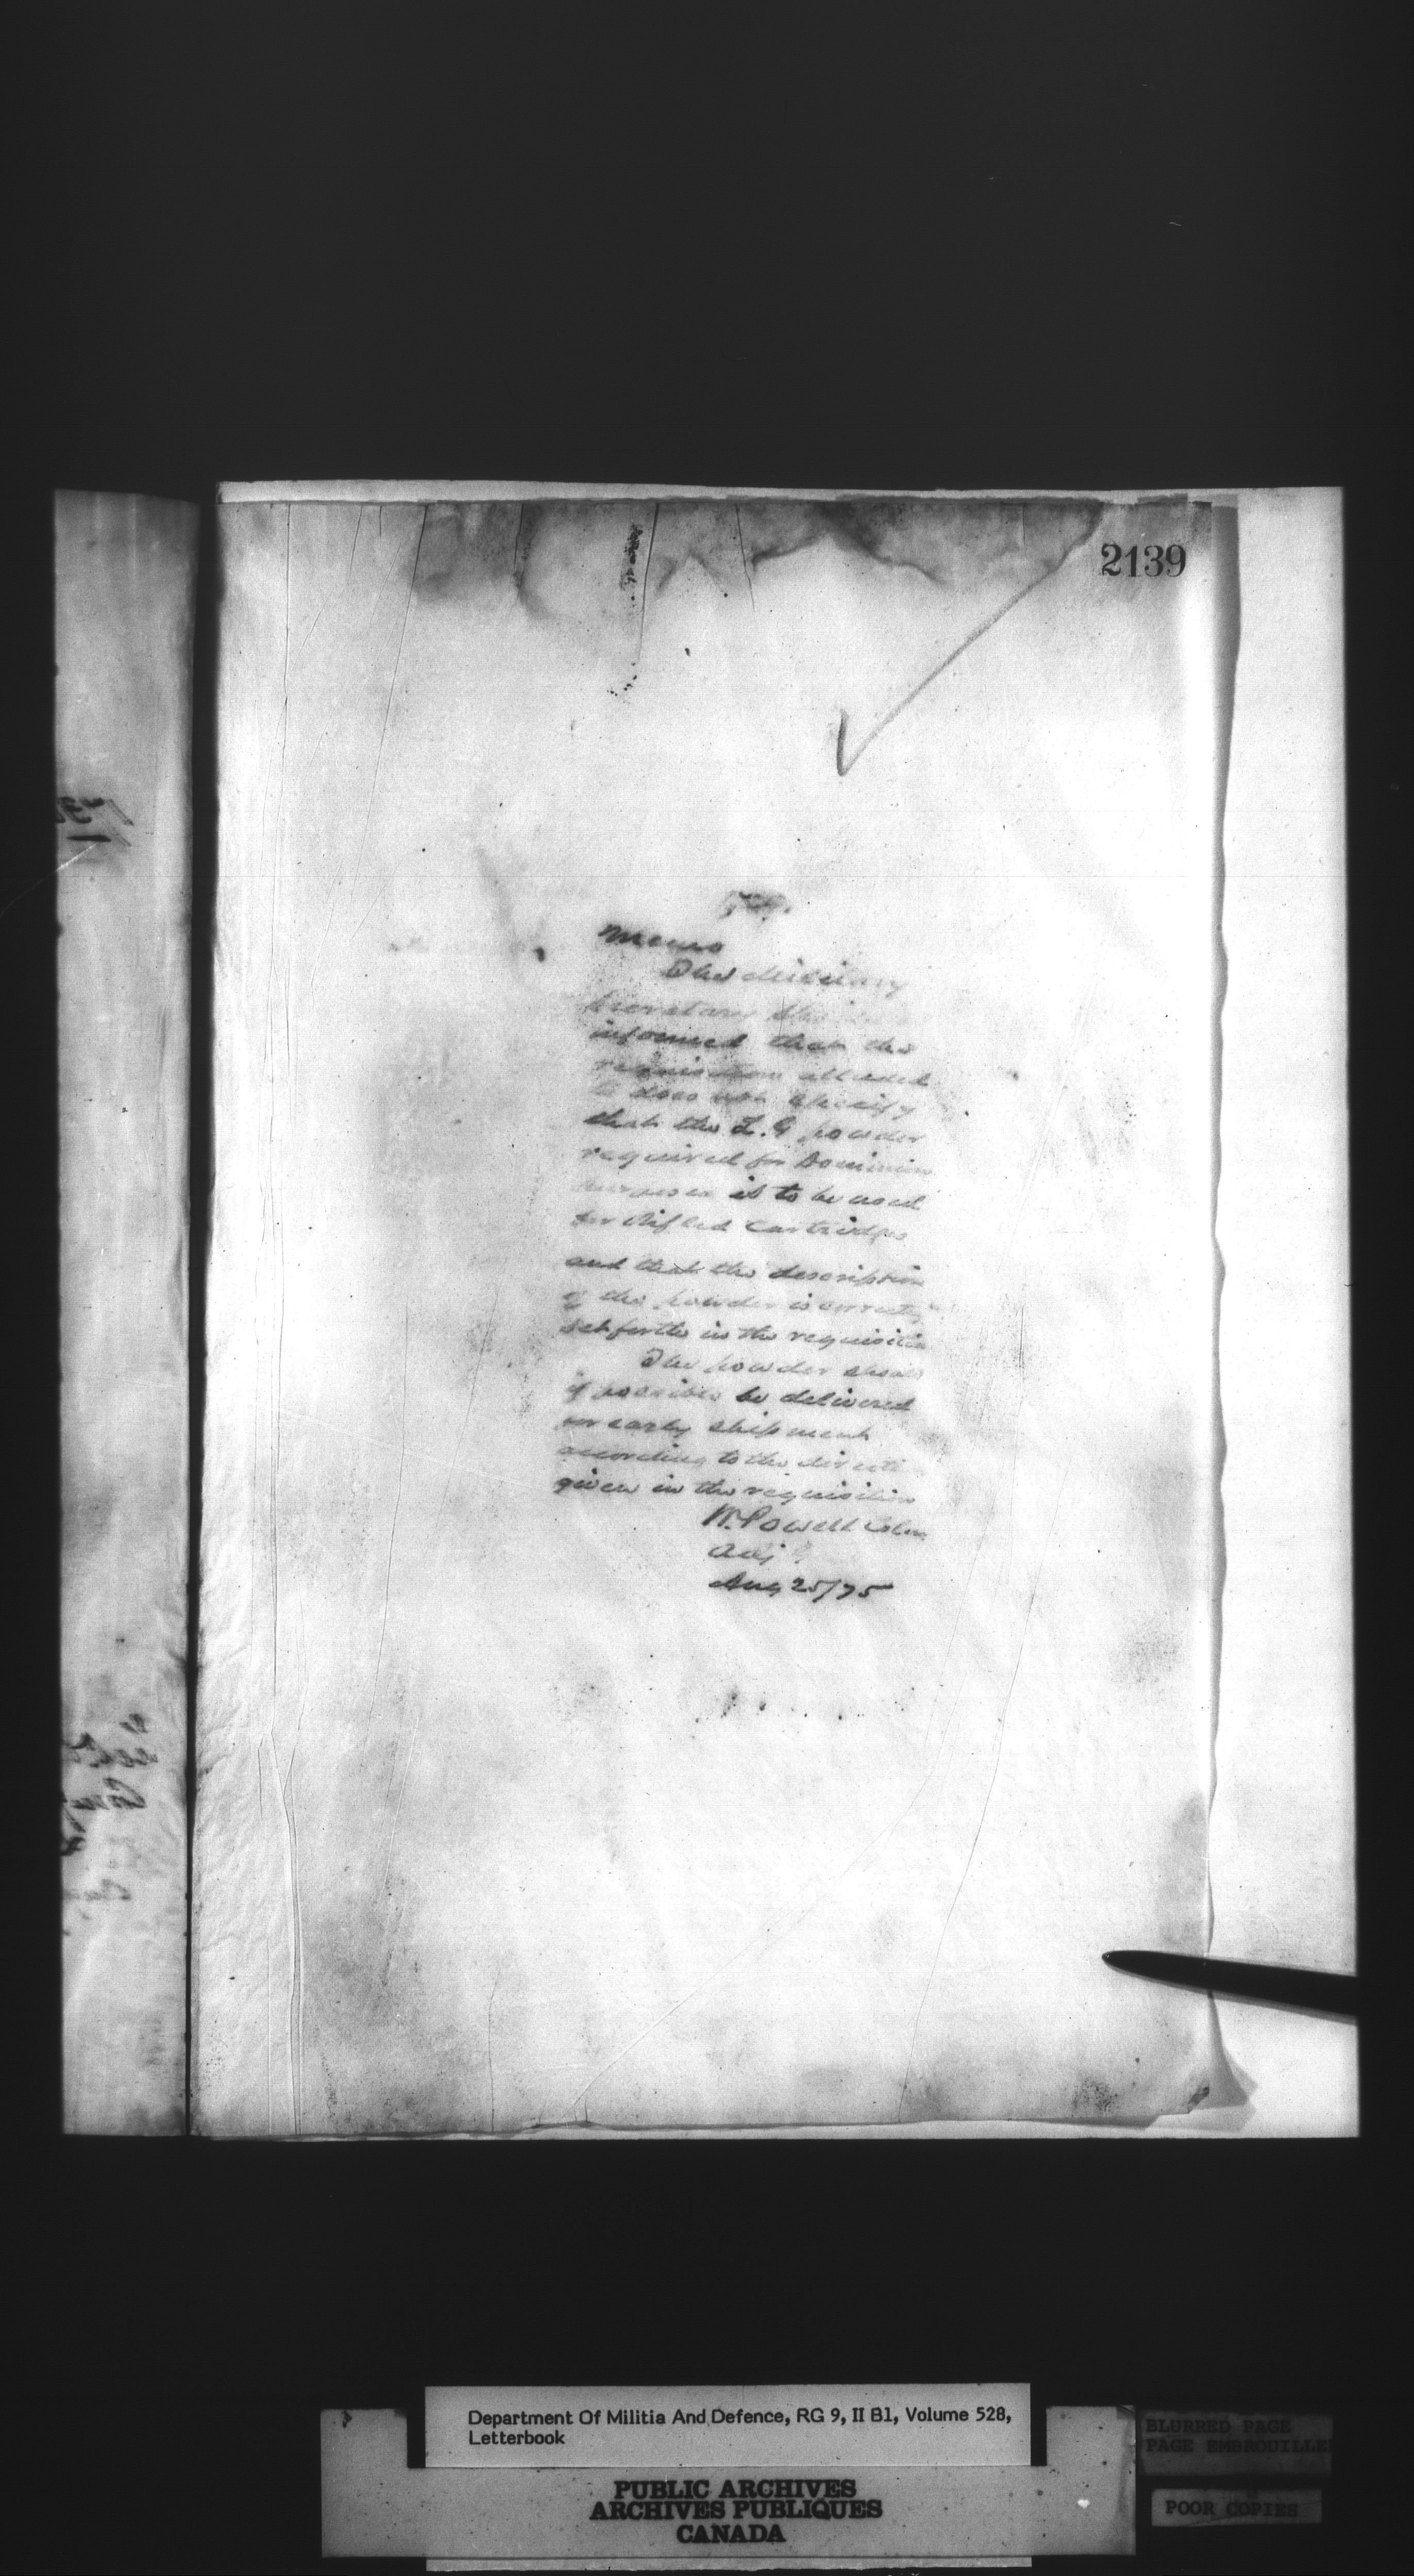 2139
Memo
The Military
Secretary should be
informed that the
requisition alluded
to does not specify
that the L.G powder
required for Dominion
purposes is to be used
for Rifled Cartridges
and that the description
of the powder is correctly
set forth in the requisition
The powder should
if possible be delivered
for early shipment
according to the
given in the requisition
W. Powell Colon
Adj
Aug 25/75
Department Of Militia And Defence, RG 9, II B1, Volume 528,
Letterbook
PUBLIC ARCHIVES
ARCHIVES PUBLIQUES
CANADA
BLURRED PAGE
PAGE EMBROUILLE
POOR COPIES